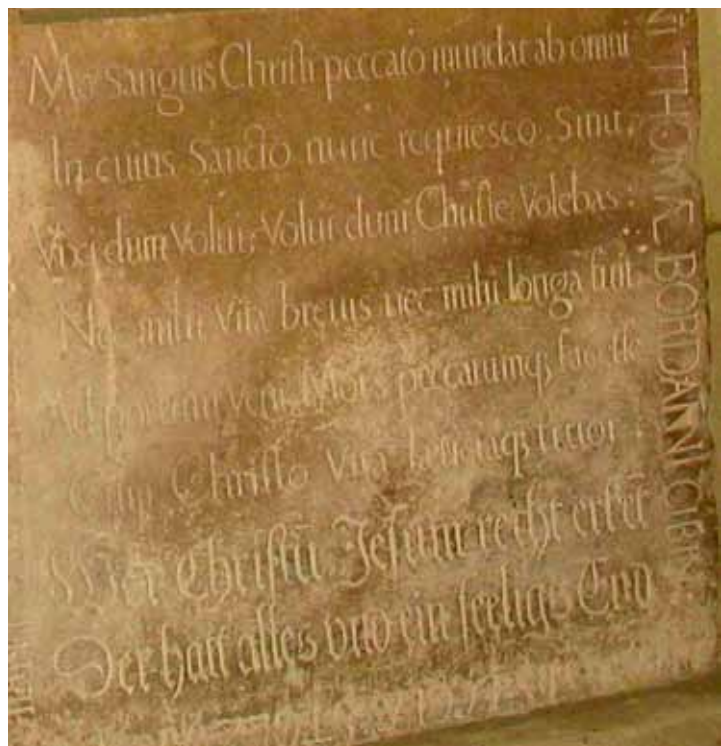 Me sanguis Christi peccato mundat ab omni
In cuius Sancto nunc requiesco Sinu.
Vixi dum Volui, Volui dum Christe Volebas:
Nec mihi Vita brevis nec mihi longa fuit.
Ad portum veni, Mors peccatumq,
Cum Christo Vita
Wer Christū Jesum recht erkēt
Der hatt alles vnd ein seeliges End
THOMÆ BORDANNI